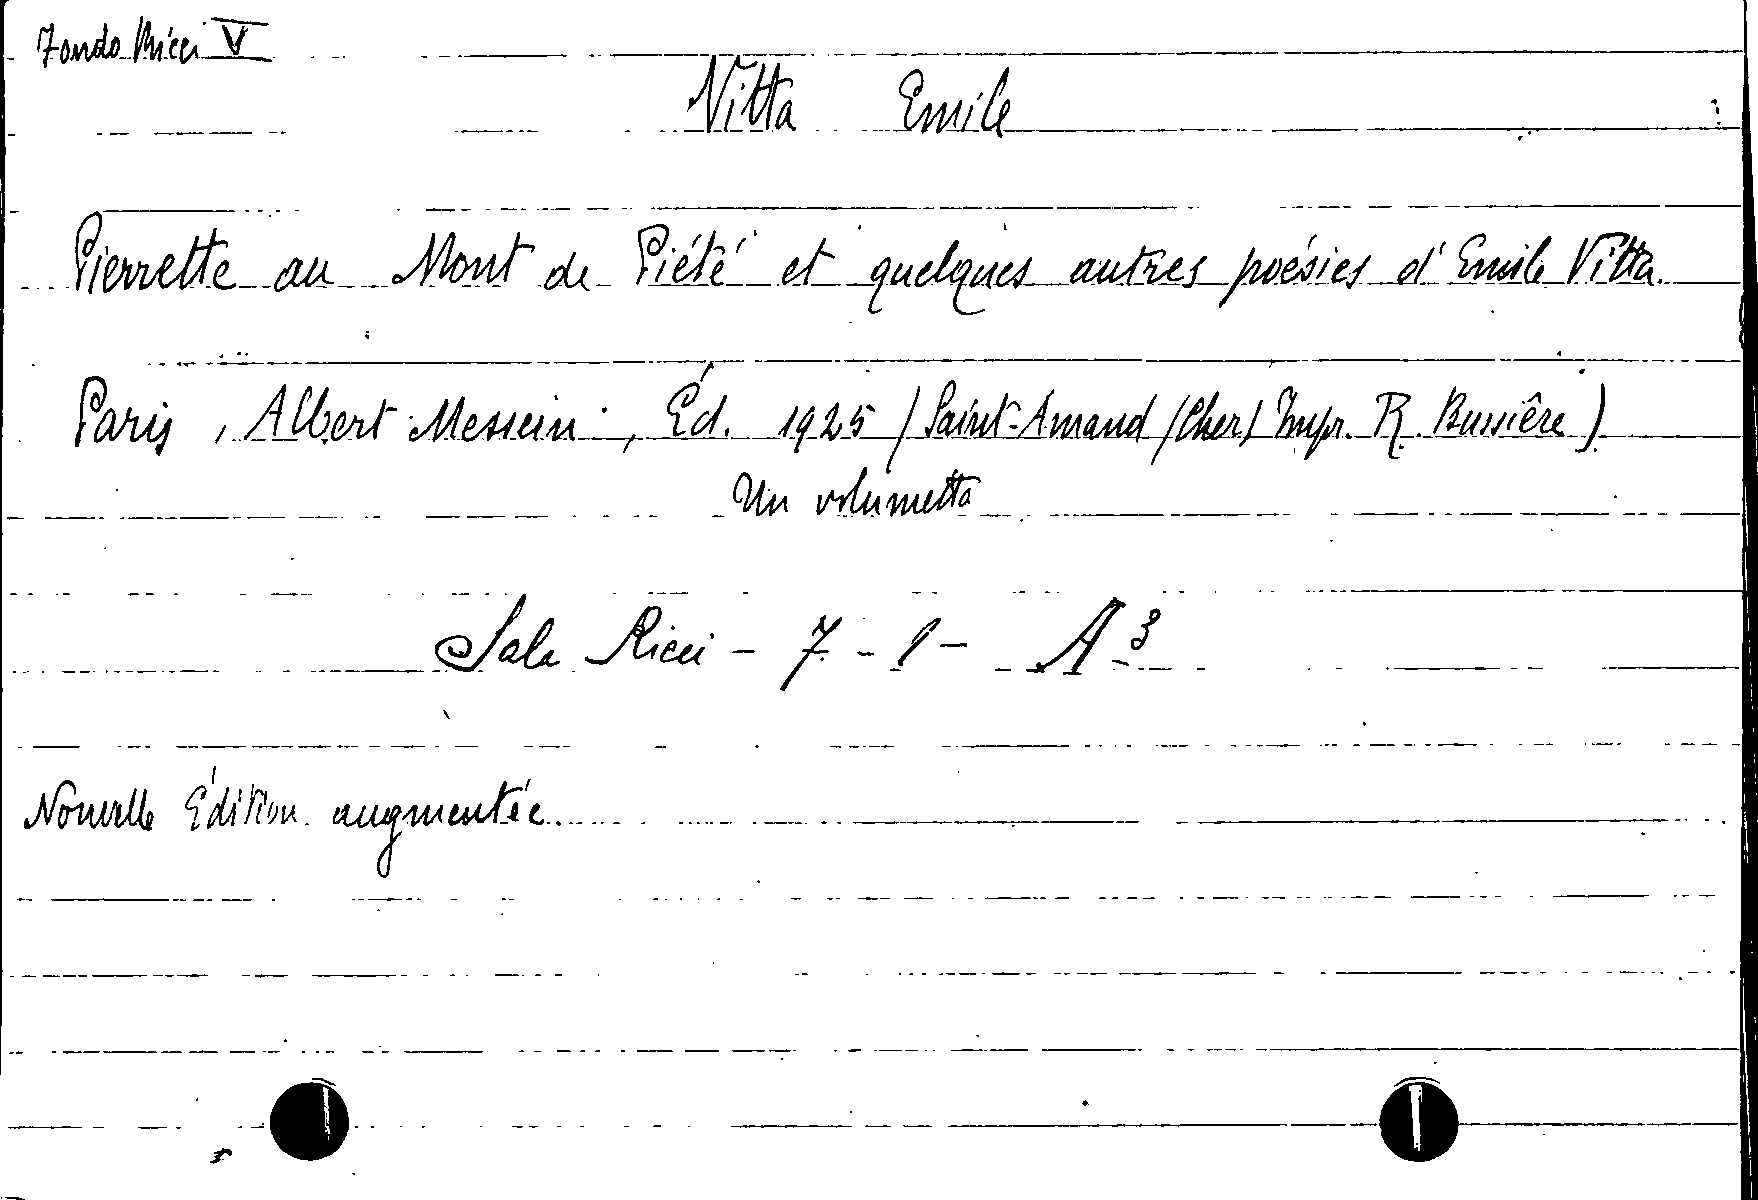 Fondo Ricci V
Vitta Emile
Pierrette au Mont de Piété et quelques autres poésies d'Emile Vitta.
Paris, Albert Messein, Éd. 1925 (Saint-Amand (Cher) Impr. R. Bussière)
Un volumetto
Sala Ricci - 7 - 1 - A 3
Nouvelle Édition augmentée.